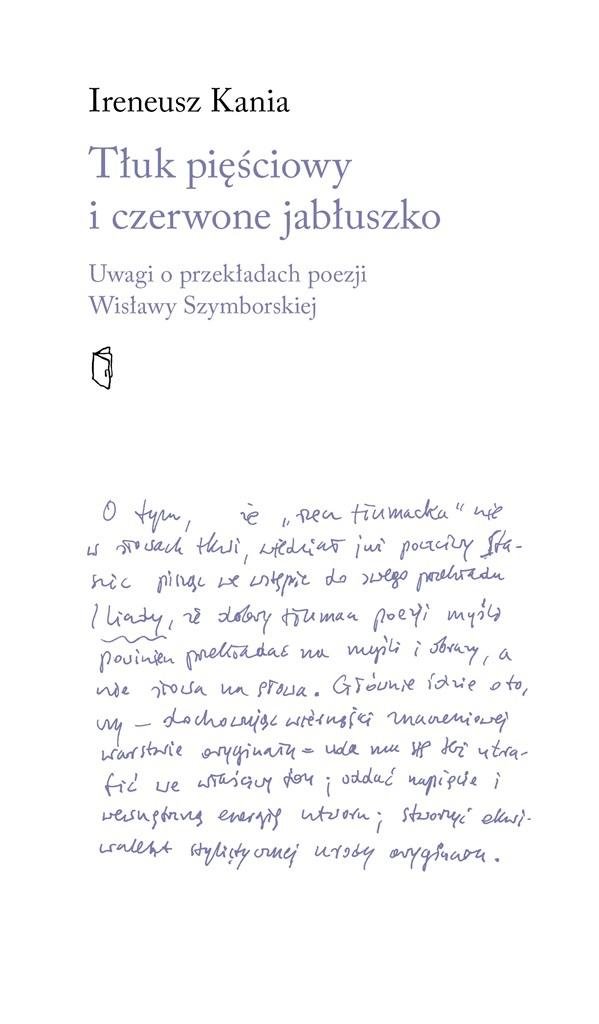 Ireneusz Kania
Tłuk pięściowy
i czerwone jabłuszko
Uwagi o przekładach poezji
Wisławy Szymborskiej
O tym, że „rzecz tłumacka" nie
w słowach tkwi, wiedział już poczciwy Sta-
szic pisząc we wstępie do swego przekładu
Iliady, że dobry tłumacz poezji myśli
powinien przekładać na myśli i obrazy, a
nie słowa na słowa. Głównie idzie o to,
czy – dochowując wierności znaczeniowej
warstwie oryginału – uda mu się też utra-
fić we właściwy ton; oddać napięcie i
wewnętrzną energię utworu; stworzyć ekwi-
walent stylistycznej urody oryginału.